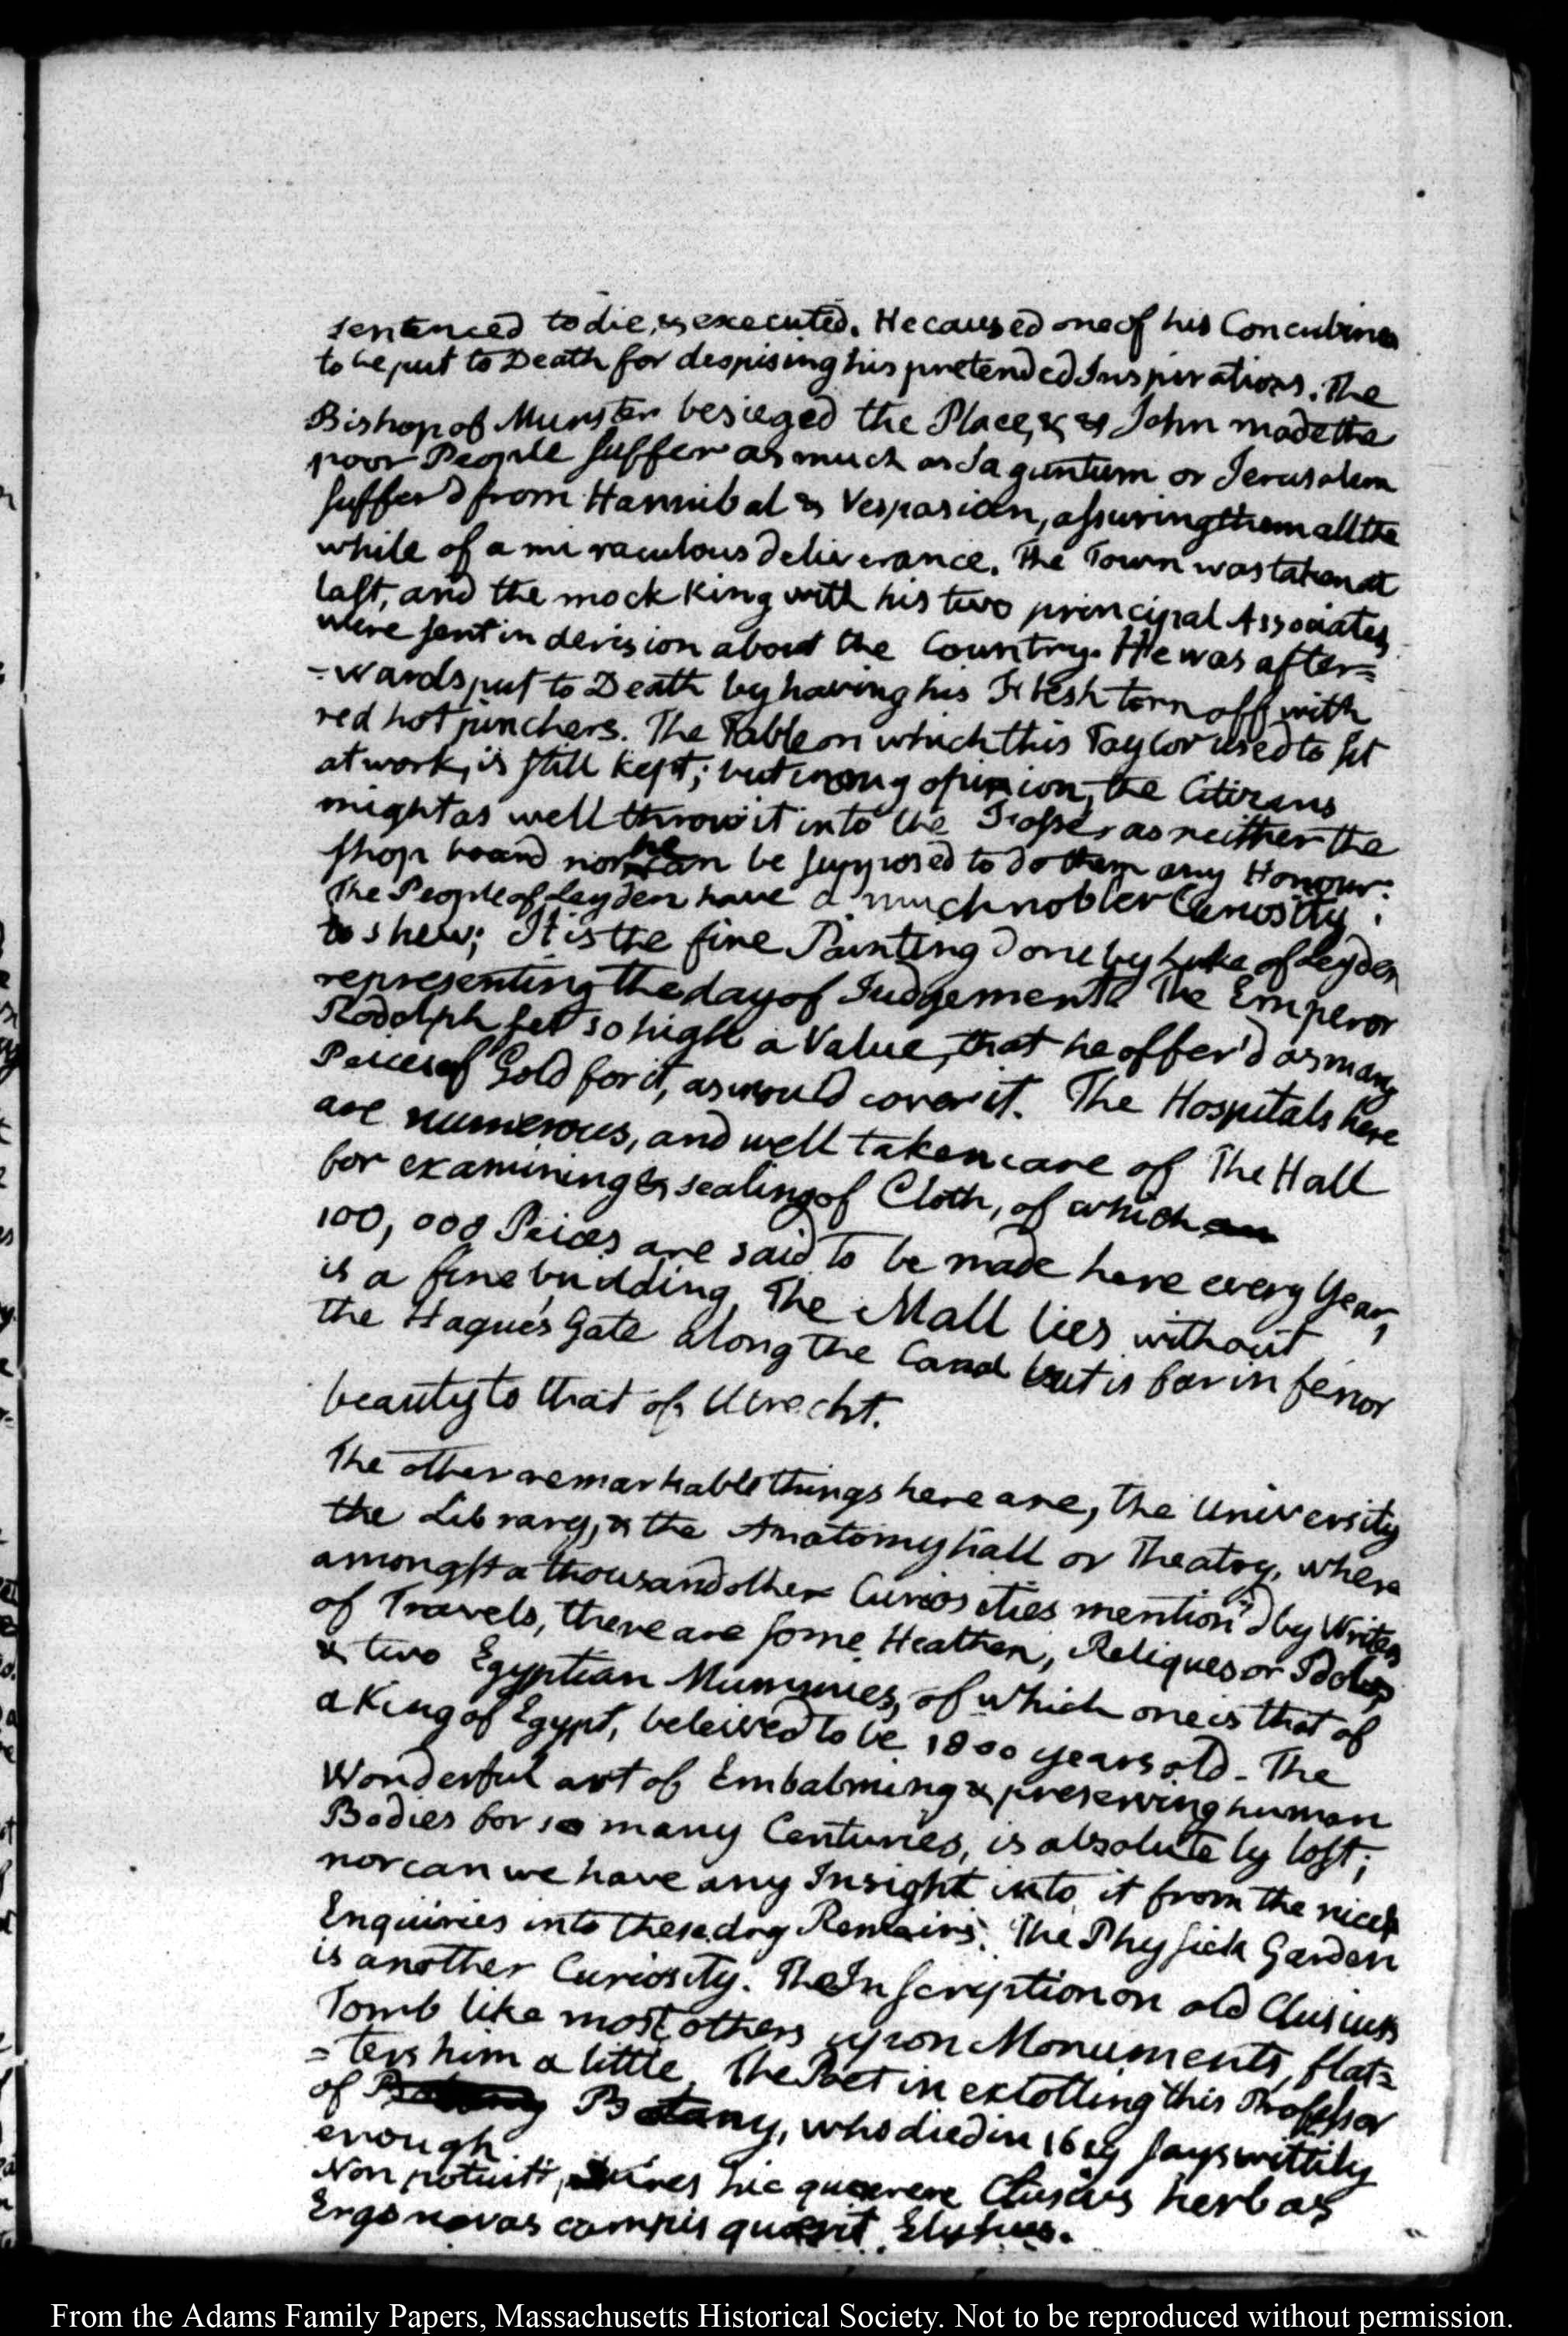 sentenced to die, & executed. He caused one of his Concubines
to be put to Death for despising his pretended Inspirations. The
Bishop of Munster besieged the Place, & John made the
poor People suffer as much as Saguntum or Jerusalem
suffer'd from Hannibal & Vespasian, assuring them all the
while of a miraculous deliverance. The Town was taken at
last, and the mock King with his two principal Associates,
were sent in derision about the Country. He was after=
=wards put to Death by having his Flesh torn off with
red hot pinchers. The Table on which this Taylor used to sit
at work, is still kept; but in my opinion, the Citizens
might as well throw it into the Fosse, as neither the
shop board nor he can be supposed to do them any Honour.
The People of Leyden have a much nobler Curiosity
to shew; It is the fine Painting done by Luke of Leyden
representing the day of Judgement. The Emperor
Rodolph set so high a Value, that he offer'd as many
Peices of Gold for it, as would cover it. The Hospitals here
are numerous, and well taken care of The Hall
for examining & sealing of Cloth, of which
100,000 Peices are said to be made here every Year,
is a fine building. The Mall lies without
the Hague's Gate along the Canal but is far inferior
beauty to that of Utrecht.
The other remarkable things here are, the University
the Library, & the Anatomy hall or Theatry, where
amongst a thousand other Curiosities mention'd by Writers
of Travels, there are some Heathen, Reliques or Idols,
& two Egyptian Mummies, of which one is that of
a King of Egypt, beleived to be 1800 years old. The
Wonderful art of Embalming & preserving human
Bodies for so many Centuries, is absolutely lost;
nor can we have any Insight into it from the nicest
Enquiries into these dry Remains. The Physick Garden
is another Curiosity. The Inscryption on old Clusius's
Tomb like most others upon Monuments, flat=
=ters him a little. The Poet in extolling this Professor
of Botany, who died in 1619 says wittily
enough
Non potuit, plures hic quaerere Clusius herbas
Ergo novas campis quaerit Elysiis.
From the Adams Family Papers, Massachusetts Historical Society. Not to be reproduced without permission.